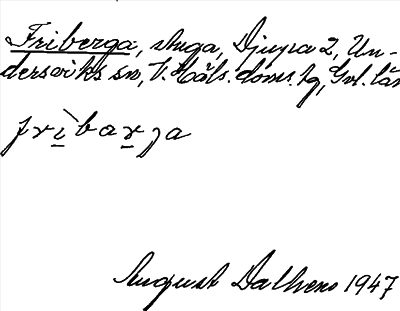 Friberga, stuga, Djupa 2, Un-
dersviks sn, V. Häls. doms. hg, Gvl. län
frìbarga
August Dalhems 1947